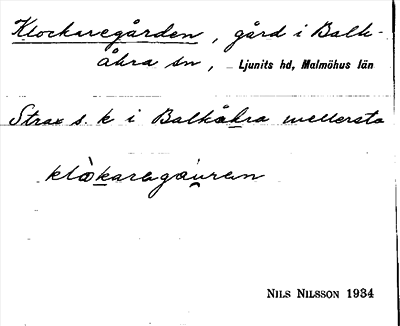 Klockaregården, gård i Balk-
åkra sn, Ljunits hd, Malmöhus län
Strax s. k i Balkåkra mellersta
klòkaragáu̯ren
NILS NILSSON 1934